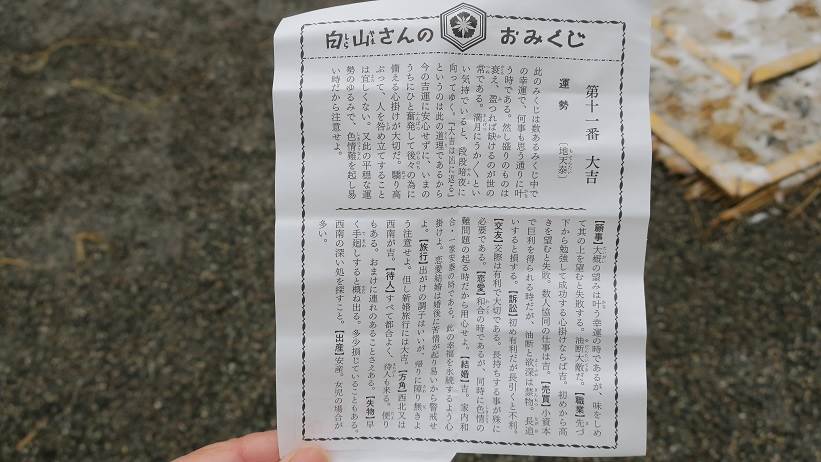 白山さんの おみくじ
第十一番 大吉
運勢 (地天泰)
此のみくじは数あるみくじ中で
の幸運で、何事も思う通りに叶
う時である。然し盛りのものは
衰え、盈つれば缺けるのが世の
常である。満月にうかうかとい
い気持でいると、段段暗夜に
向ってゆく。「大吉は凶に返る」
というのは此の道理であるから
今の吉運に安心せずに、いまの
うちにひと奮発して後々の為に
備える心掛けが大切だ。驕り高
ぶって、人を咎め立てすること
は宜しくない。又此の平穏な運
勢のゆるみで、色情難を起し易
い時だから注意せよ。
【願事】大概の望みは叶う幸運の時であるが、味をしめ
て其の上を望むと失敗する。油断大敵だ。【職業】先づ
下から勉強して成功する心掛けならば吉。初めから高
きを望むと失敗。数人協同の仕事は吉。【売買】小資本
で巨利を得られる時だが、油断と欲深は禁物。長追
いすると損する。【訴訟】初め有利だが長引くと不利。
【交友】交際は有利で大切である。長持ちする事が殊に
必要である。【恋愛】和合の時であるが、同時に色情の
難問題の起る時だから用心せよ。【結婚】吉。家内和
合・一家安泰の時である。此の幸福を永続するよう心
掛けよ。恋愛結婚は婚後に苦情が起り易いから警戒せ
よ。【旅行】出がけの調子はいいが、帰りに障り無きよ
う注意せよ。但し新婚旅行には大吉。【方角】西北又は
西南が吉。【待人】すべて都合よく、待人も来る。便り
もある。おまけに連れのあることさえある。【失物】早
く手廻しすると概ね出る。多少損じていることもある。
西南の深い処を探すこと。【出産】安産。女児の場合が
多い。